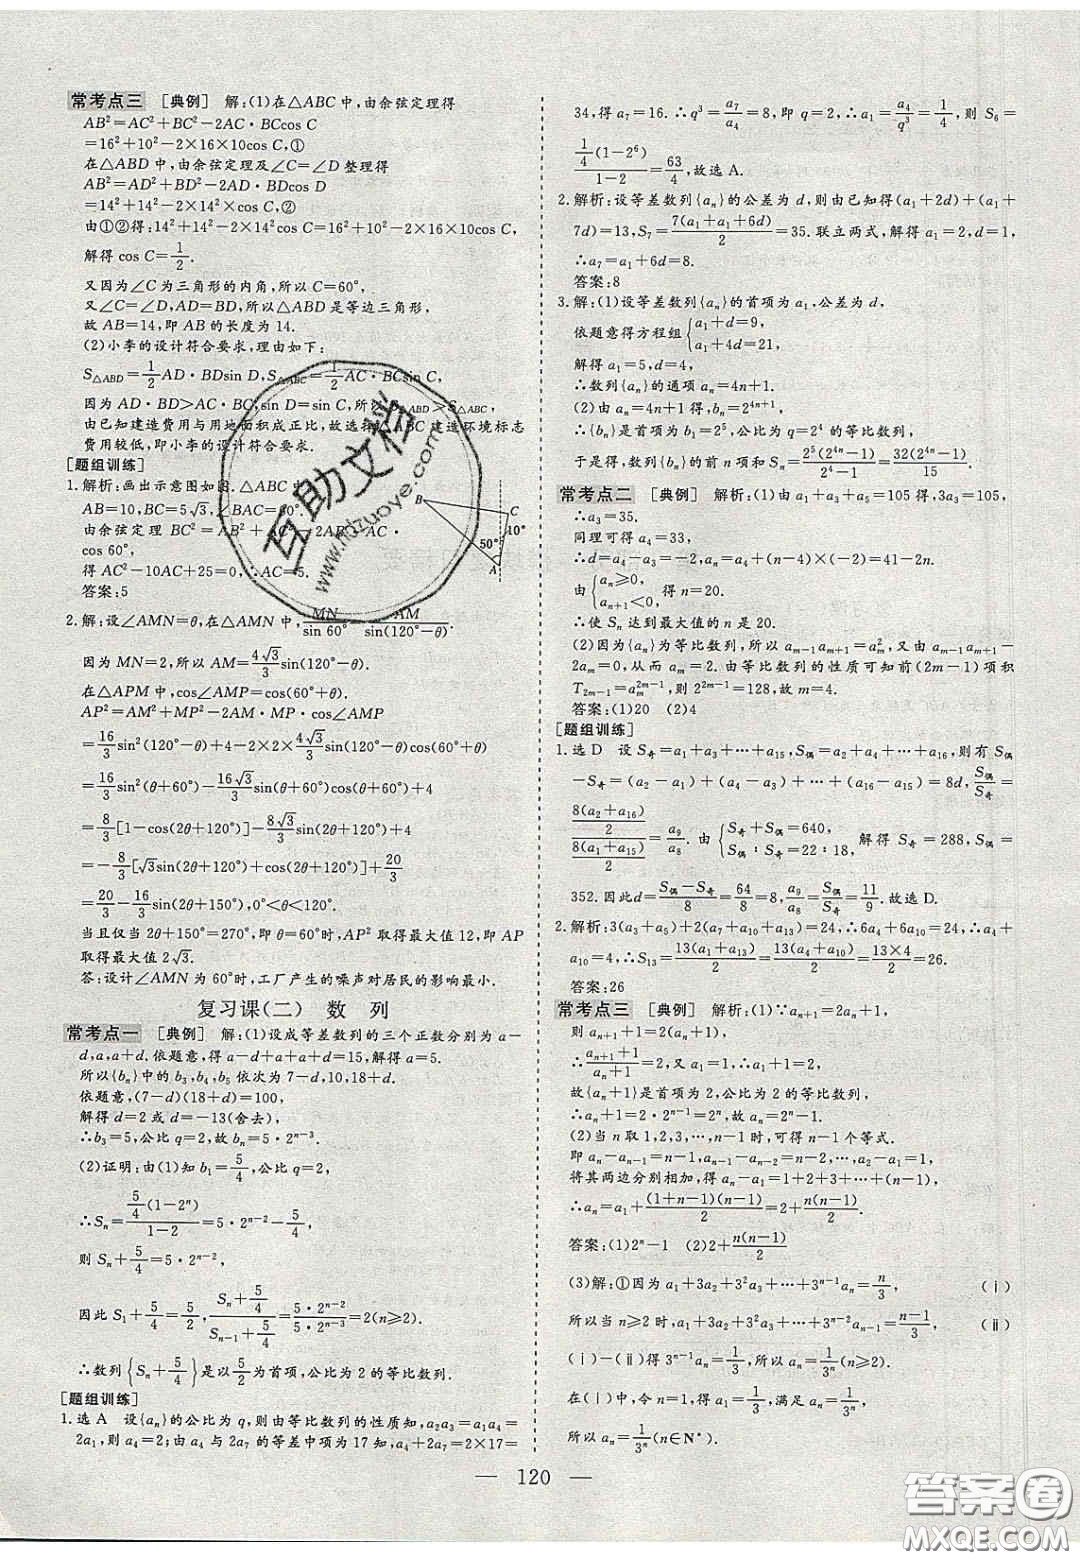 常考点三 [典例] 解:(1)在△ABC中,由余弦定理得
AB²=AC²+BC²-2AC·BCcos C
=16²+10²-2×16×10cos C,①
在△ABD中,由余弦定理及∠C=∠D整理得
AB²=AD²+BD²-2AD·BDcos D
=14²+14²-2×14²cos C,②
由①②得:14²+14²-2×14²cos C=16²+10²-2×16×10cos C,
解得 cos C=1/2.
又因为∠C为三角形的内角,所以C=60°,
又∠C=∠D,AD=BD,所以△ABD是等边三角形,
故AB=14,即AB的长度为14.
(2)小李的设计符合要求,理由如下:
S△ABD=1/2 AD·BDsin D,S△ABC=1/2 AC·BCsin C,
因为AD·BD>AC·BC,sin D=sin C,所以S△ABD>S△ABC,
由已知建造费用与用地面积成正比,故选择△ABC建造环境标志
费用较低,即小李的设计符合要求.
[题组训练]
1.解析:画出示意图如图.△ABC中,
AB=10,BC=5√3,∠BAC=60°.
由余弦定理 BC²=AB²+AC²-2AB·AC·
cos 60°,
得 AC²-10AC+25=0,∴AC=5.
答案:5
B C 10° 50° A
2.解:设∠AMN=θ,在△AMN中,MN/sin 60°=AM/sin(120°-θ).
因为MN=2,所以AM=4√3/3 sin(120°-θ).
在△APM中,cos∠AMP=cos(60°+θ).
AP²=AM²+MP²-2AM·MP·cos∠AMP
=16/3 sin²(120°-θ)+4-2×2×4√3/3 sin(120°-θ)cos(60°+θ)
=16/3 sin²(θ+60°)-16√3/3 sin(θ+60°)cos(θ+60°)+4
=8/3[1-cos(2θ+120°)]-8√3/3 sin(2θ+120°)+4
=-8/3[√3sin(2θ+120°)+cos(2θ+120°)]+20/3
=20/3-16/3 sin(2θ+150°),0°<θ<120°.
当且仅当2θ+150°=270°,即θ=60°时,AP²取得最大值12,即AP
取得最大值2√3.
答:设计∠AMN为60°时,工厂产生的噪声对居民的影响最小.
复习课(二) 数 列
常考点一 [典例] 解:(1)设成等差数列的三个正数分别为a-
d,a,a+d.依题意,得a-d+a+a+d=15,解得a=5.
所以{bₙ}中的b₃,b₄,b₅依次为7-d,10,18+d.
依题意,(7-d)(18+d)=100,
解得d=2或d=-13(舍去),
∴b₃=5,公比q=2,故bₙ=5·2ⁿ⁻³.
(2)证明:由(1)知b₁=5/4,公比q=2,
∴Sₙ=5/4(1-2ⁿ)/(1-2)=5·2ⁿ⁻²-5/4,
则Sₙ+5/4=5·2ⁿ⁻²,
因此S₁+5/4=5/2,(Sₙ+5/4)/(Sₙ₋₁+5/4)=5·2ⁿ⁻²/5·2ⁿ⁻³=2(n≥2).
∴数列{Sₙ+5/4}是以5/2为首项,公比为2的等比数列.
[题组训练]
1.选A 设{aₙ}的公比为q,则由等比数列的性质知,a₂a₃=a₁a₄=
2a₁,则a₄=2;由a₄与2a₇的等差中项为17知,a₄+2a₇=2×17=
34,得a₇=16.∴q³=a₇/a₄=8,即q=2,a₁=a₄/q³=1/4,则S₆=
1/4(1-2⁶)/(1-2)=63/4,故选A.
2.解析:设等差数列{aₙ}的公差为d,则由已知得(a₁+2d)+(a₁+
7d)=13,S₇=7(a₁+a₁+6d)/2=35.联立两式,解得a₁=2,d=1,
∴a₇=a₁+6d=8.
答案:8
3.解:(1)设等差数列{aₙ}的首项为a₁,公差为d,
依题意得方程组{a₁+d=9, a₁+4d=21,
解得a₁=5,d=4,
∴数列{aₙ}的通项aₙ=4n+1.
(2)由aₙ=4n+1得,bₙ=2⁴ⁿ⁺¹,
∴{bₙ}是首项为2⁵,公比为q=2⁴的等比数列,
于是得,数列{bₙ}的前n项和Sₙ=2⁵(2⁴ⁿ-1)/(2⁴-1)=32(2⁴ⁿ-1)/15.
常考点二 [典例] 解析:(1)由a₁+a₃+a₅=105得,3a₃=105,
∴a₃=35.
同理可得a₄=33,
∴d=a₄-a₃=-2,aₙ=a₄+(n-4)×(-2)=41-2n.
由{aₙ≥0, aₙ₊₁<0,得n=20.
∴使Sₙ达到最大值的n是20.
(2)因为{aₙ}为等比数列,所以aₘ₋₁aₘ₊₁=aₘ²,又由aₘ₋₁aₘ₊₁-
2aₘ=0,从而aₘ=2.由等比数列的性质可知前(2m-1)项积
T₂ₘ₋₁=aₘ²ᵐ⁻¹,则2²ᵐ⁻¹=128,故m=4.
答案:(1)20 (2)4
[题组训练]
1.选D 设S奇=a₁+a₃+…+a₁₅,S偶=a₂+a₄+…+a₁₆,则有S偶
-S奇=(a₂-a₁)+(a₄-a₃)+…+(a₁₆-a₁₅)=8d,S偶/S奇=
(8(a₂+a₁₆)/2)/(8(a₁+a₁₅)/2)=a₉/a₈.由{S奇+S偶=640, S偶:S奇=22:18,解得S奇=288,S偶=
352.因此d=(S偶-S奇)/8=64/8=8,a₉/a₈=S偶/S奇=11/9.故选D.
2.解析:3(a₃+a₅)+2(a₇+a₁₀+a₁₃)=24,∴6a₄+6a₁₀=24,∴a₄+
a₁₀=4,∴S₁₃=13(a₁+a₁₃)/2=13(a₄+a₁₀)/2=13×4/2=26.
答案:26
常考点三 [典例] 解析:(1)∵aₙ₊₁=2aₙ+1,
则aₙ₊₁+1=2(aₙ+1).
∴(aₙ₊₁+1)/(aₙ+1)=2,又a₁=1,∴a₁+1=2.
故{aₙ+1}是首项为2,公比为2的等比数列,
∴aₙ+1=2·2ⁿ⁻¹=2ⁿ,故aₙ=2ⁿ-1.
(2)当n取1,2,3,…,n-1时,可得n-1个等式.
即aₙ-aₙ₋₁=n-1,aₙ₋₁-aₙ₋₂=n-2,…,a₂-a₁=1,
将其两边分别相加,得aₙ-a₁=1+2+3+…+(n-1),
∴aₙ=a₁+(1+n-1)(n-1)/2=2+n(n-1)/2.
答案:(1)2ⁿ-1 (2)2+n(n-1)/2
(3)解:①因为a₁+3a₂+3²a₃+…+3ⁿ⁻¹aₙ=n/3, (ⅰ)
所以当n≥2时,a₁+3a₂+3²a₃+…+3ⁿ⁻²aₙ₋₁=(n-1)/3, (ⅱ)
(ⅰ)-(ⅱ)得3ⁿ⁻¹aₙ=1/3,所以aₙ=1/3ⁿ(n≥2).
在(ⅰ)中,令n=1,得a₁=1/3,满足aₙ=1/3ⁿ,
所以aₙ=1/3ⁿ(n∈N*).
— 120 —
互助文档
www.hdzuoye.com
答案圈
MXQE.COM